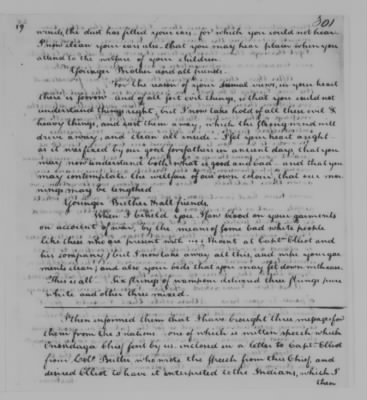 19 301
winds, the dust has filled your ears, for which you could not hear
I now clean your ears also, that you may hear plain when you
attend to the welfare of your children.
Younger Brother and all friends.
For the reason of your dismal views, in your heart
there is sorrow and of all for evil things, is that you could not
understand things right, but I now take hold of all these evil &
heavy things, and cast them away, which the strong wind will
drive away, and clean all inside. I set your heart aright
as it was fixed by our good forefathers in ancient days that you
may now understand both what is good and bad. and that you
may contemplate the welfare of our own children, that our mor-
nings may be lengthed
Younger Brother & all friends,
When I beheld you I saw blood on your garments
on account of war, by the means of some bad white people
like these who are present with us; (meant at Capt. Elliot and
his company,) but I now take away all this, and wipe your gar-
ments clean; and also your beds that you may set down with ease.
This is all. Six strings of wampom delivered three strings pure
white and other three mixed.
I then informed them that I have brought three messages for
them from the 5 nations. one of which is written speech which
Onondaga Chief sent by us. inclosed in a letter to Capt. Elliot
from Col. Butler who wrote the speech from this Chief, and
desired Elliot to have it interpreted to the Indians, which I
then